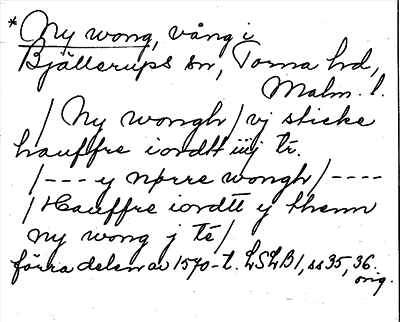 * Ny wong, vång i
Bjällerups sn, Torna hd,
Malm. l.
/ Ny wongh / vj sticke
hauffre iordtt iiij tr.
/ --- y nörre wongh / ----
/ Hauffre iordtt y thenn
ny wong j té /
förra delen av 1570-t. LSLB 1, ss 35, 36.
orig.